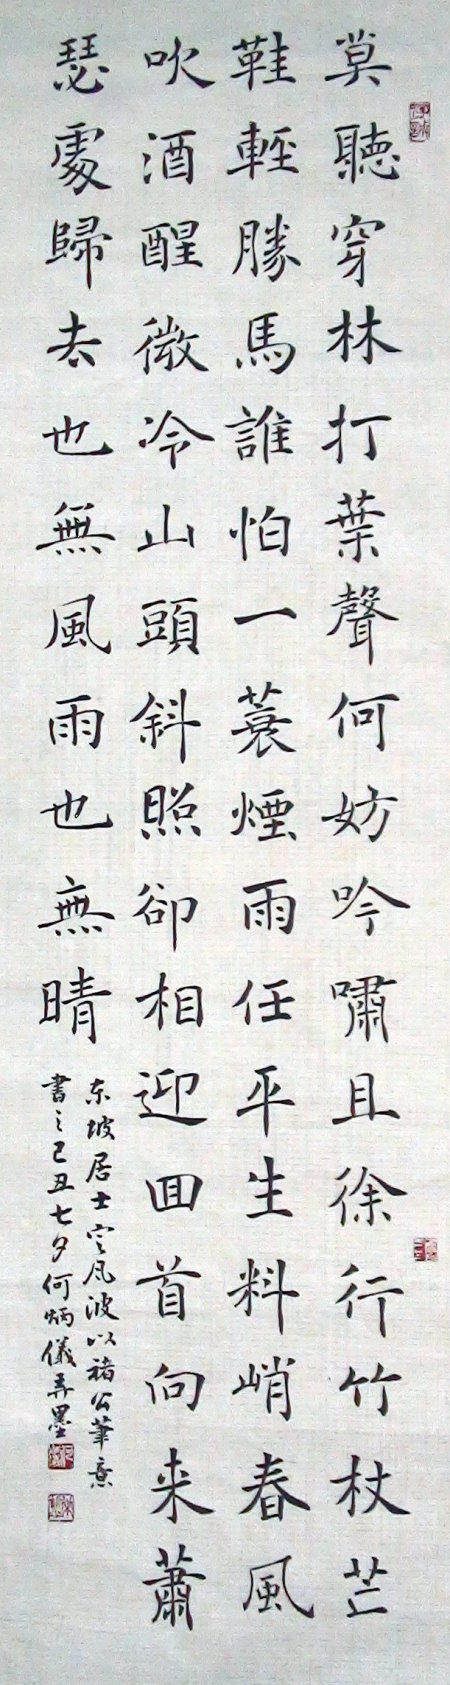 莫聽穿林打葉聲何妨吟嘯且徐行竹杖芒
鞋輕勝馬誰怕一蓑煙雨任平生料峭春風
吹酒醒微冷山頭斜照卻相迎回首向来蕭
瑟處歸去也無風雨也無晴
东坡居士定风波以褚公筆意
書之己丑七夕何炳儀弄墨